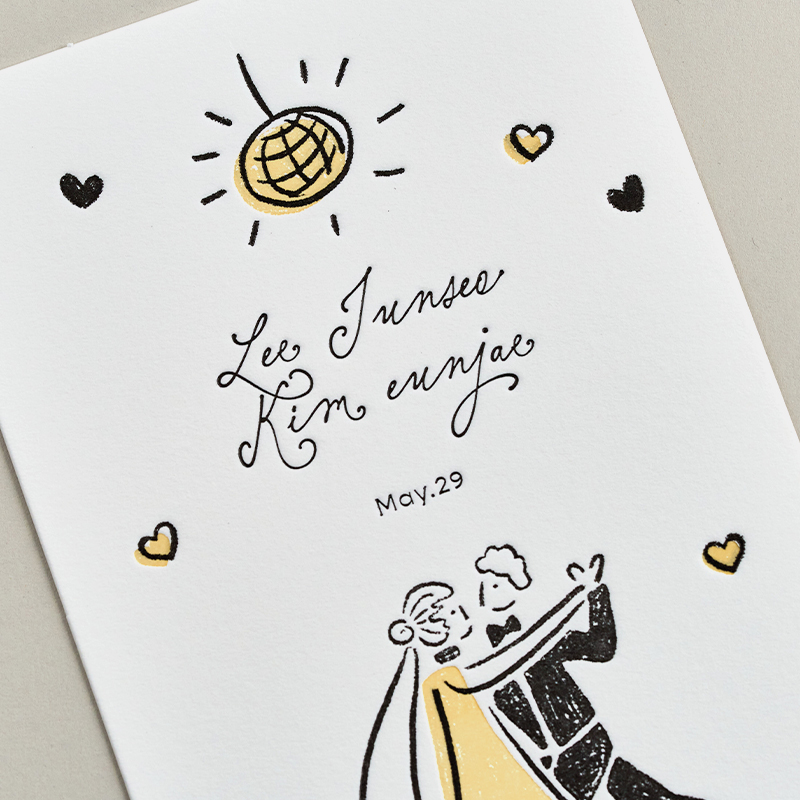 Lee Junseo
Kim eunjae
May.29